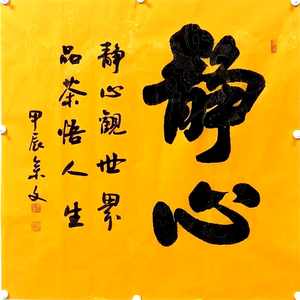 静心
静心觀世界
品茶悟人生
甲辰
文